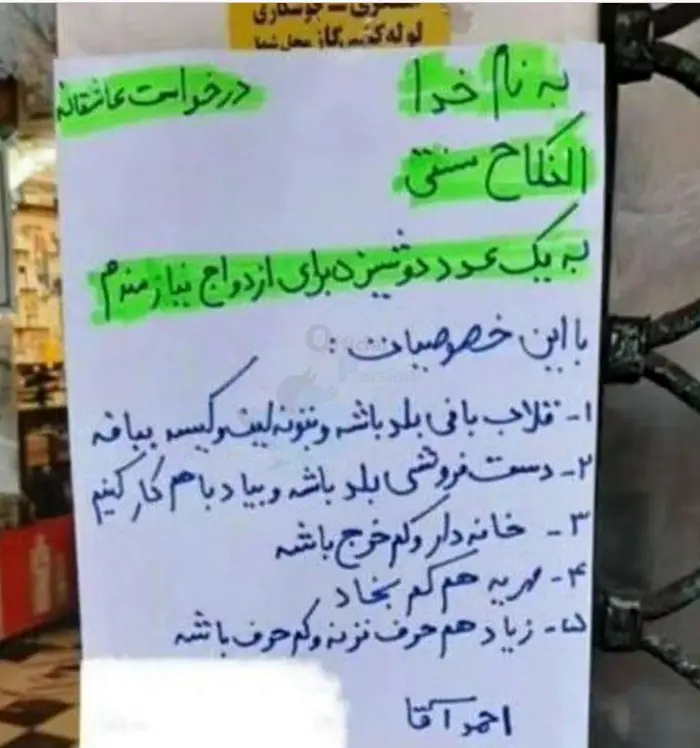 جوشکاری
لوله کشی گاز محل شما
به نام خدا
درخواست عاشقانه
النکاح سنتی
به یک عدد دوشیزه برای ازدواج نیازمندم
با این خصوصیات :
۱- قلاب بافی بلد باشه و بتونه لیف و کیسه ببافه
۲- دست فروشی بلد باشه و بیاد با هم کار کنیم
۳- خانه دار و کم خرج باشه
۴- مهریه هم کم بخاد
۵- زیاد هم حرف نزنه و کم حرف باشه
احمد آقا